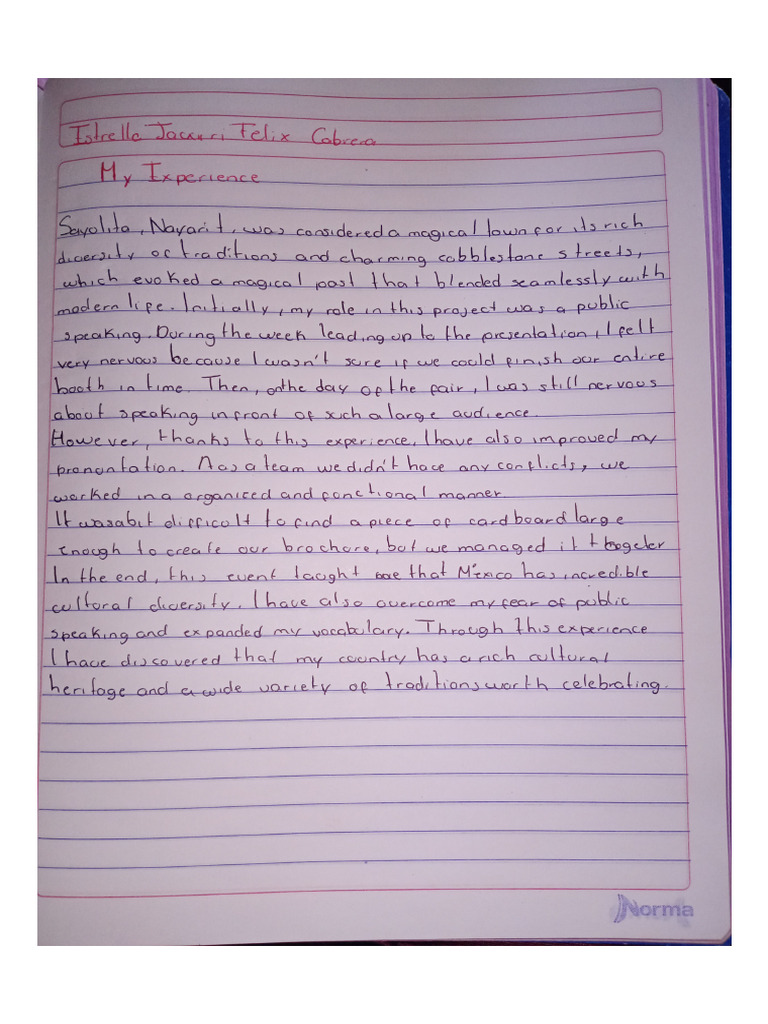 Estrella Jaxxuri Felix Cabrera
My Experience
Sayolita, Nayarit, was considered a magical town for its rich
diversity of traditions and charming cobblestone streets,
which evoked a magical past that blended seamlessly with
modern life. Initially, my role in this project was a public
speaking. During the week leading up to the presentation, I felt
very nervous because I wasn't sure if we could finish our entire
booth in time. Then, on the day of the fair, I was still nervous
about speaking in front of such a large audience.
However, thanks to this experience, I have also improved my
pronontation. As a team we didn't have any conflicts, we
worked in a organiced and fonctional manner.
It was a bit difficolt to find a piece of cardboard large
enough to create our brochore, but we managed it together
In the end, this event taught me that México has incredible
cultoral diversity. I have also overcome my fear of public
speaking and expanded my vocabulary. Through this experience
I have discovered that my country has a rich cultural
heritage and a wide variety of traditions worth celebrating.
Norma